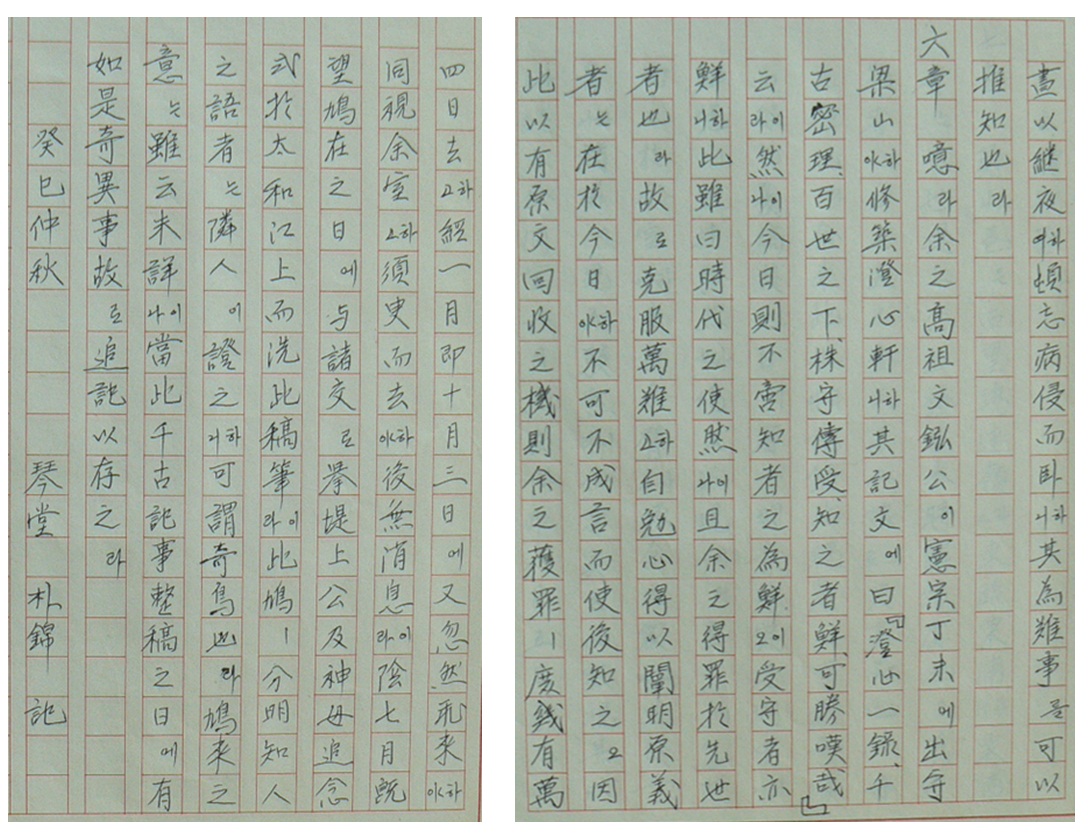 晝以継夜하여頓忘病侵而臥하니其為難事를可以
推知也라
六章 噫라余之高祖文鈜公이憲宗丁未에出守
梁山하야修築澄心軒하니其記文에曰「澄心一錄、千
古密理、百世之下、株守傳受、知之者鮮、可勝嘆哉」
云이라然이나今日則不啻知者之為鮮이오受守者亦
鮮하니此雖曰時代之使然이나且余之得罪於先世
者也라故로克服萬難하고自勉心得以闡明原義
者는在於今日하야不可不成言而使後知之오因
此以有原文回收之機則余之獲罪ㅣ庶幾有萬
四日去하고經一月即十月三日에又忽然飛來하야
同視余室하고須臾而去하야後無消息이라陰七月旣
望鳩在之日에与諸交로挙堤上公及神母追念
式於太和江上而洗此稿筆이라此鳩ㅣ分明知人
之語者는隣人이證之하니可謂奇鳥也라鳩來之
意는雖云未詳이나當此千古記事整稿之日에有
如是奇異事故로追記以存之라
癸巳仲秋 琴堂 朴錦 記